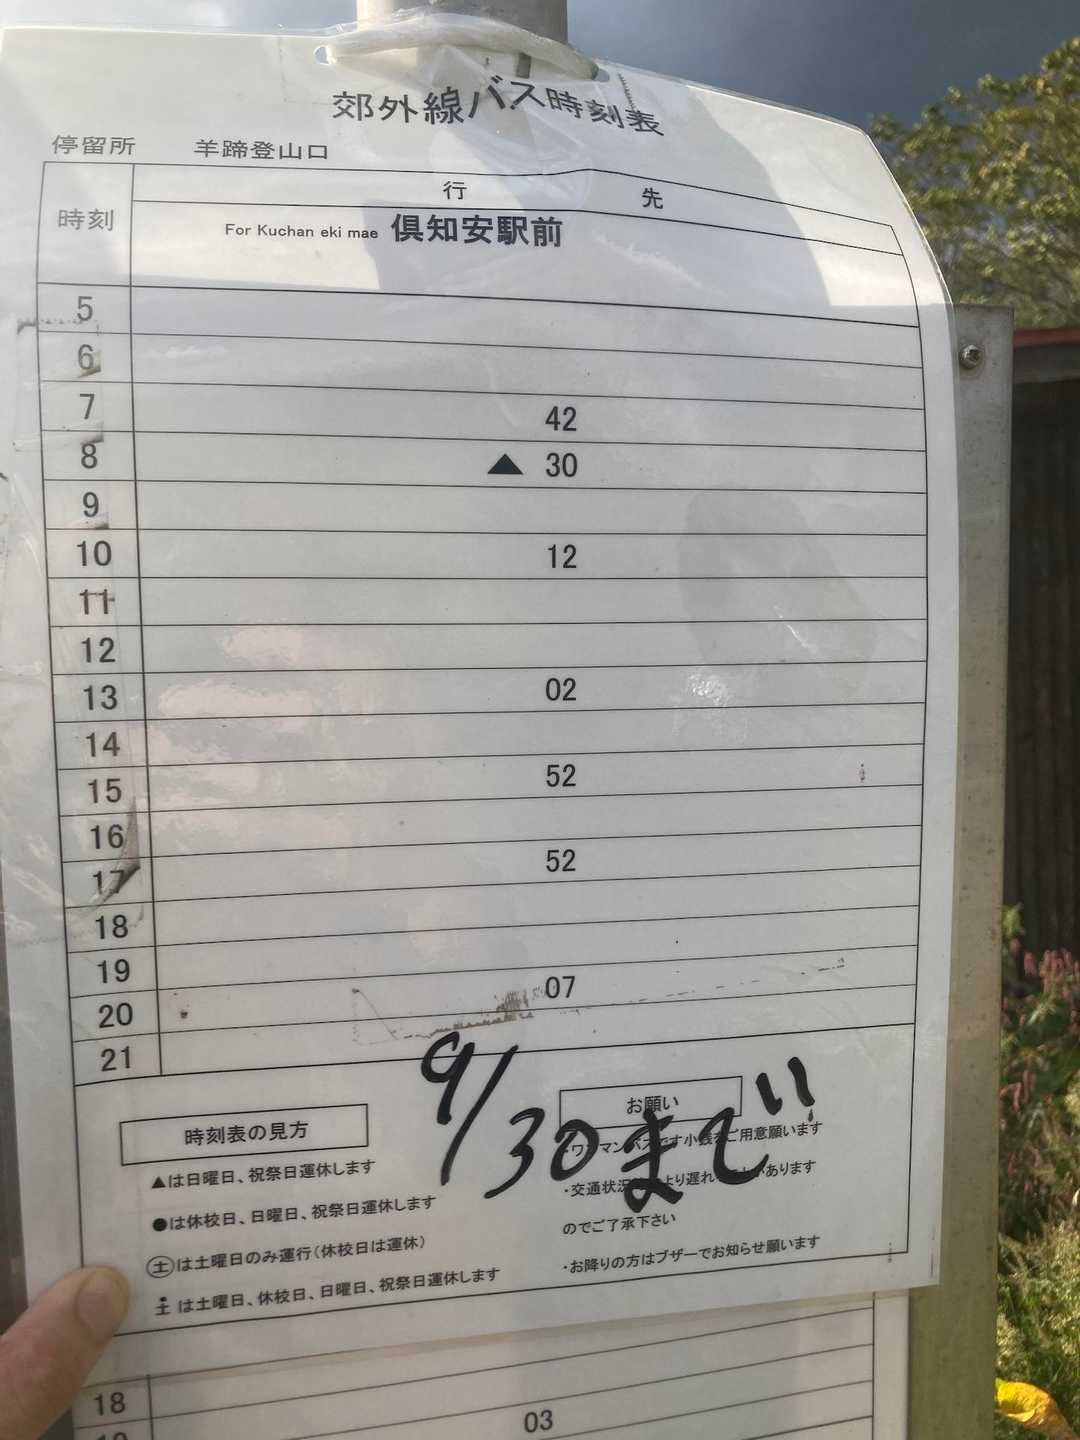 郊外線バス時刻表
停留所 羊蹄登山口
時刻 行先
For Kuchan eki mae 倶知安駅前
5
6
7 42
8 ▲ 30
9
10 12
11
12
13 02
14
15 52
16
17 52
18
19
20 07
21
9/30まで
時刻表の見方
▲は日曜日、祝祭日運休します
●は休校日、日曜日、祝祭日運休します
㊏は土曜日のみ運行(休校日は運休)
は土曜日、休校日、日曜日、祝祭日運休します
お願い
・ワンマンバスです小銭をご用意願います
・交通状況 より遅れ があります
のでご了承下さい
・お降りの方はブザーでお知らせ願います
18
03